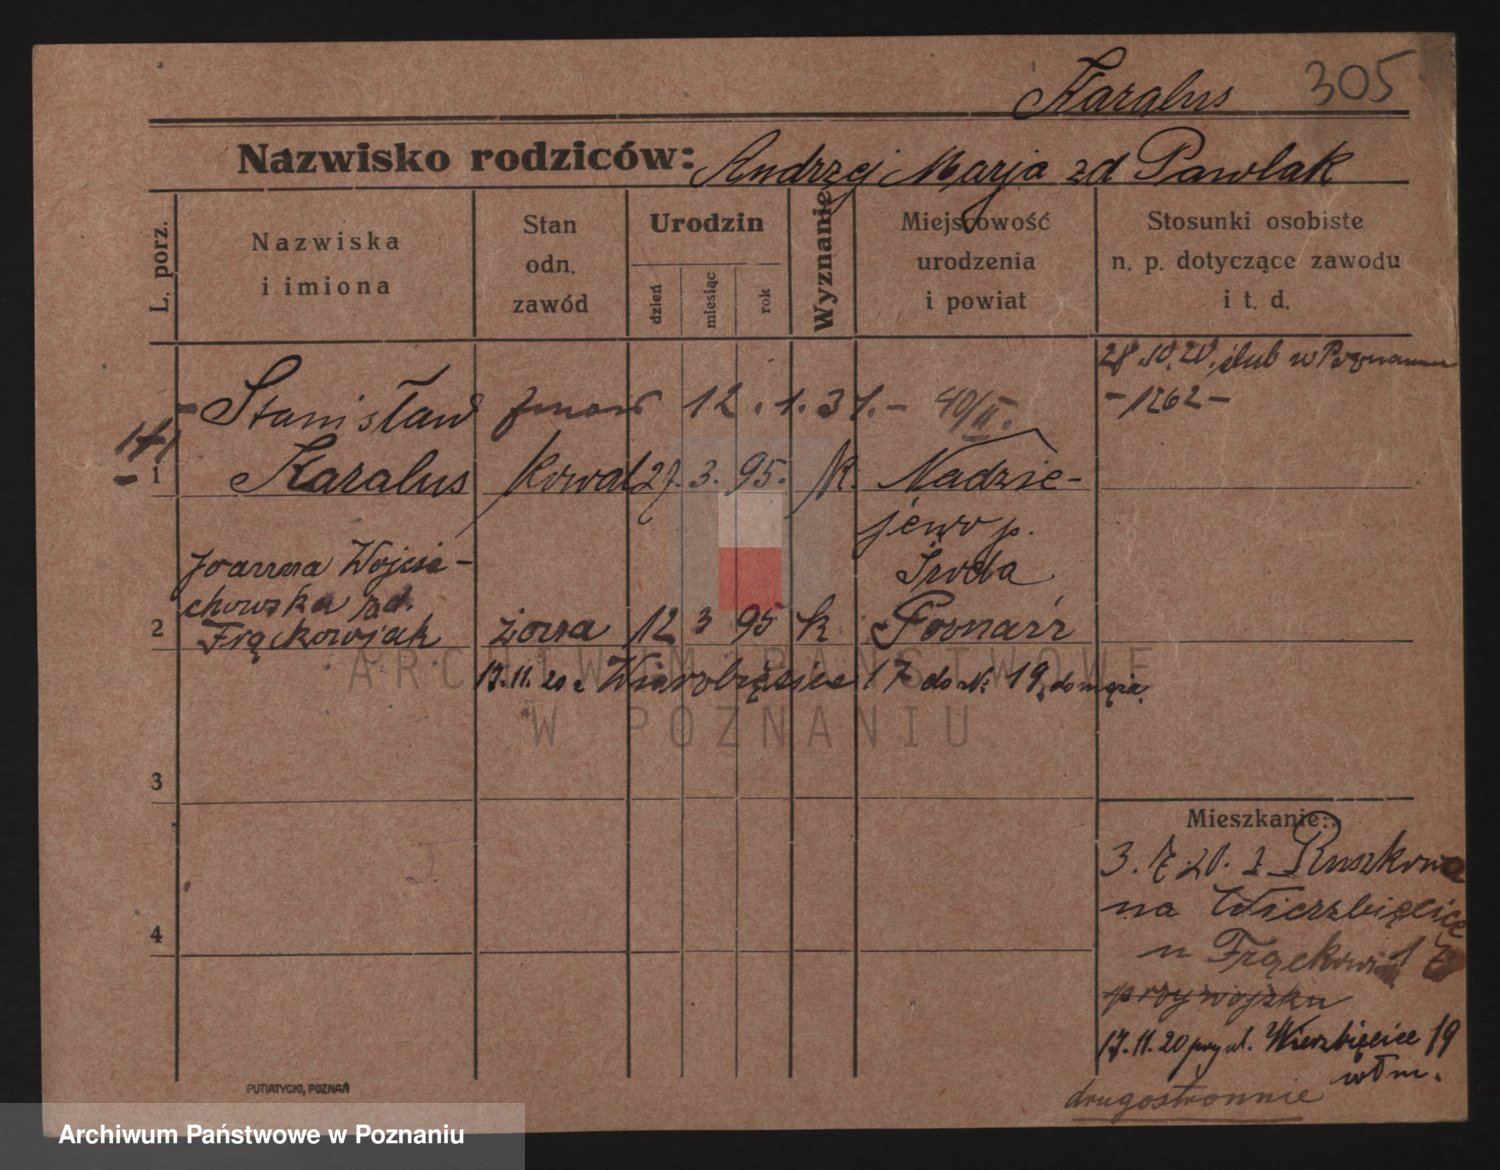 Karalus 305
Nazwisko rodziców: Andrzej Marja zd Pawlak
L. porz.
Nazwiska
i imiona
Stan
odn.
zawód
Urodzin
dzień
miesiąc
rok
Wyznanie
Miejscowość
urodzenia
i powiat
Stosunki osobiste
n. p. dotyczące zawodu
i t. d.
28.10.20. ślub w Poznaniu
- 1262 -
Stanisław zmarł 12.1.31. - 40/II.
1 Karalus kowal 27. 3. 95. k. Nadzie-
jewo p.
Środa
Joanna Wojcie-
chowska zd.
2 Frąckowiak żona 12 3 95 k Poznań
17.11.20 z Wierzbięcice 17 do Nr 19, do męża.
3
4
Mieszkanie:
3. 7. 20. z Ruszkowa
na Wierzbięcice
u Frąckowiak 17
przy wojsku
17.11.20 przy ul. Wierzbięcice 19
wł m.
drugostronnie
PUTIATYCKI, POZNAŃ
ARCHIWUM PAŃSTWOWE
W POZNANIU
Archiwum Państwowe w Poznaniu